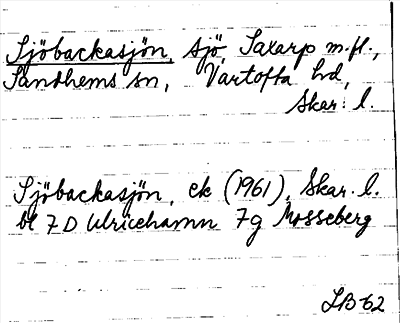 Sjöbackasjön, sjö, Saxarp m.fl.,
Sandhems sn, Vartofta hd,
Skar. l.
Sjöbackasjön, ek (1961), Skar. l.
bl 7 D Ulricehamn 7g Mosseberg
LB-62